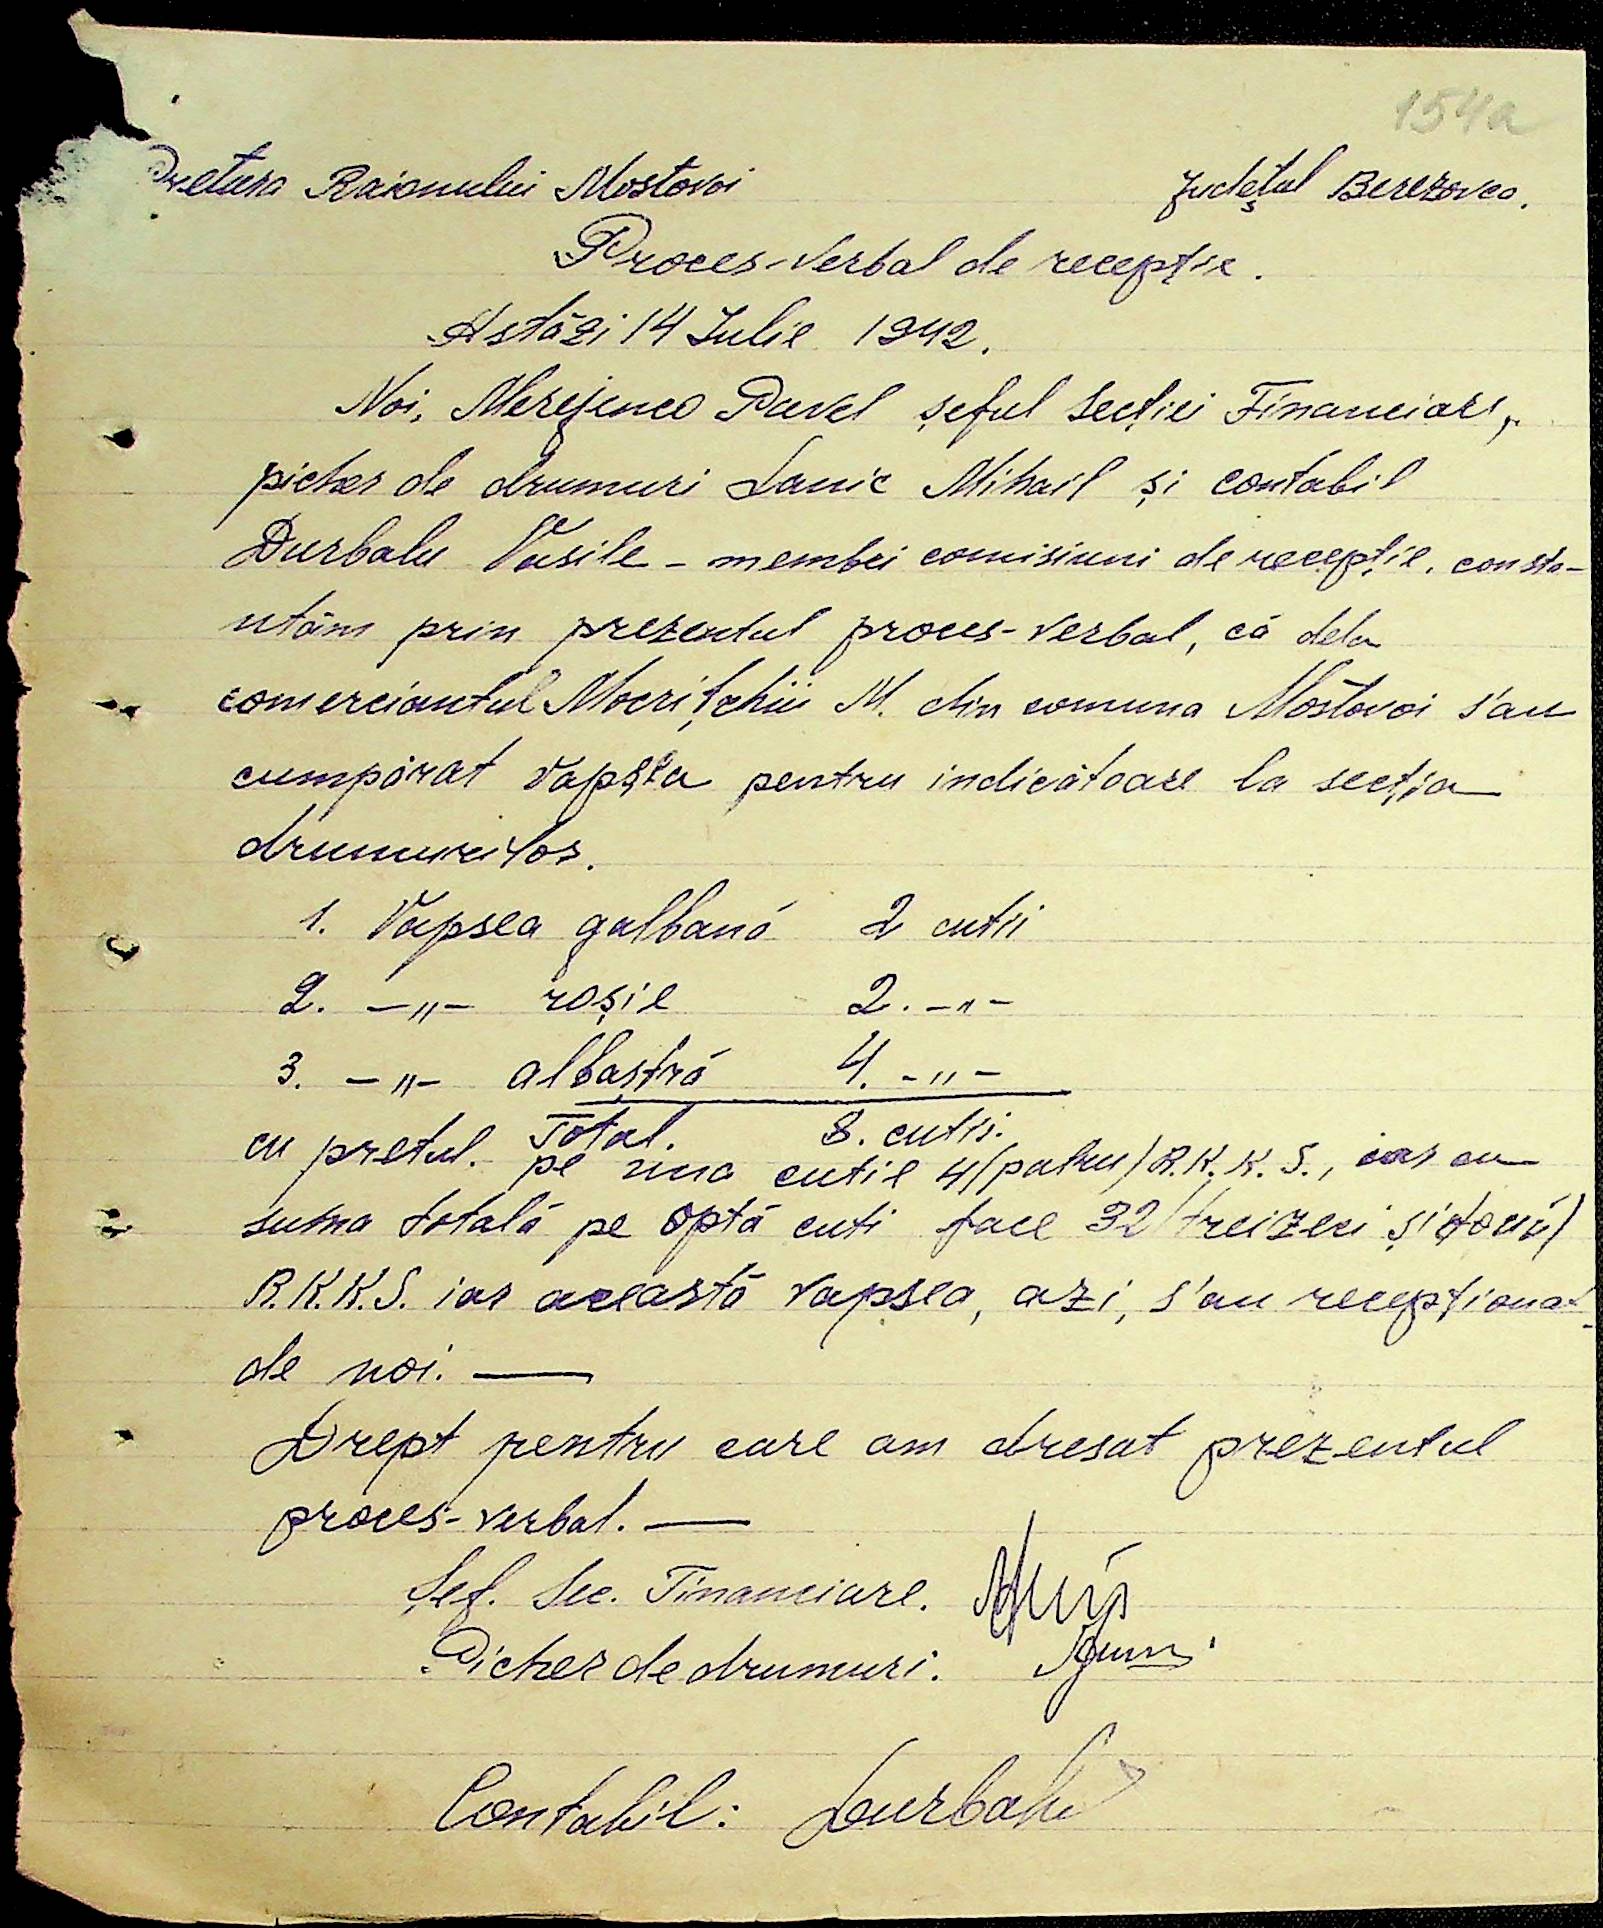 154a
Pretura Raionului Mostovoi Județul Berezovca.
Proces-Verbal de recepție.
Astăzi 14 Iulie 1942.
Noi, Merejenco Pavel șeful Secției Financiare,
picher de drumuri Lanic Mihail și contabil
Durbalu Vasile - membri comisiuni de recepție, consta-
ntăm prin prezentul proces-verbal, că dela
comerciantul Mocrițchii M. din comuna Mostovoi s'au
cumpărat vapsea pentru indicătoare la secția
drumurilor.
1. Vapsea galbană 2 cutii
2. -„- roșie 2. -„-
3. -„- albaștră 4. -„-
Total. 8. cutii.
cu pretul. pe una cutie 4/patru/R.K.K.S., iar cu
suma totală pe optă cuti face 32/treizeci și două/
R.K.K.S. iar această vapsea, azi, s'au recepționat
de noi. —
Drept pentru care am dresat prezentul
proces-verbal. —
Șef. Sec. Financiare.
Picher de drumuri.
Contabil: Durbalu